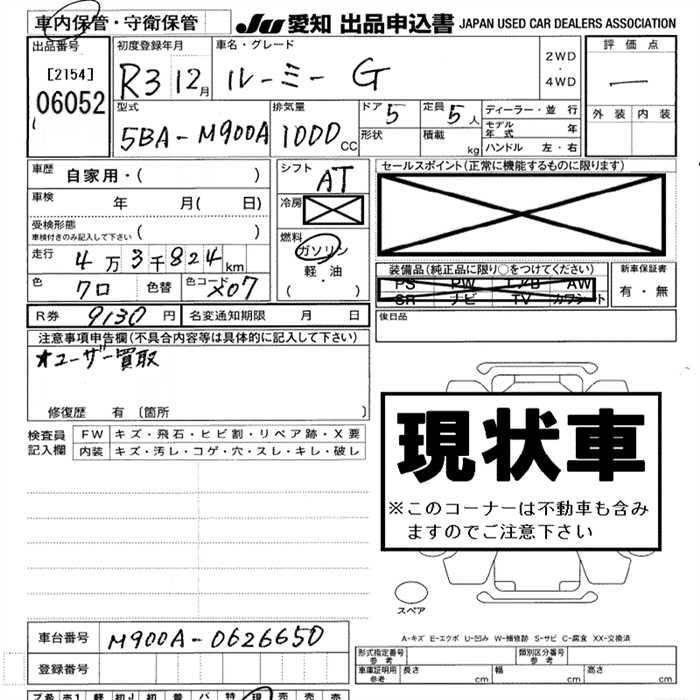 車内保管・守衛保管
JU 愛知 出品申込書 JAPAN USED CAR DEALERS ASSOCIATION
出品番号 初度登録年月 車名・グレード 2WD・4WD 評価点
[2154] 06052 R3 12月 ルーミー G —
外装 内装
型式 排気量 ドア 5 定員 5人 ディーラー・並行
5BA-M900A 1000CC 形状 積載 kg モデル年式 年
ハンドル 左・右
車歴 自家用・( ) シフト AT セールスポイント(正常に機能するものに限ります)
車検 年 月( 日) 冷房
受検形態 ( )
車検付きのみ記入して下さい
燃料 ガソリン・軽油 ( )
走行 4万3千824km
装備品(純正品に限り○をつけてください) 新車保証書
PS PW エアB AW 有・無
SR ナビ TV カワシート
色 クロ 色替 色コード X07
R券 9130円 名変通知期限 月 日 後日品
注意事項申告欄(不具合内容等は具体的に記入して下さい)
オユーザー買取
修復歴 有 [箇所 ]
検査員記入欄 FW キズ・飛石・ヒビ割・リペア跡・X要
内装 キズ・汚レ・コゲ・穴・スレ・キレ・破レ
現状車
※このコーナーは不動車も含み
ますのでご注意下さい
スペア
A-キズ E-エクボ U-凹み W-補修跡 S-サビ C-腐食 XX-交換済
車台番号 M900A-0626650
登録番号
形式指定番号 参考 類別区分番号 参考
車庫証明用 参考 長さ cm 幅 cm 高さ cm